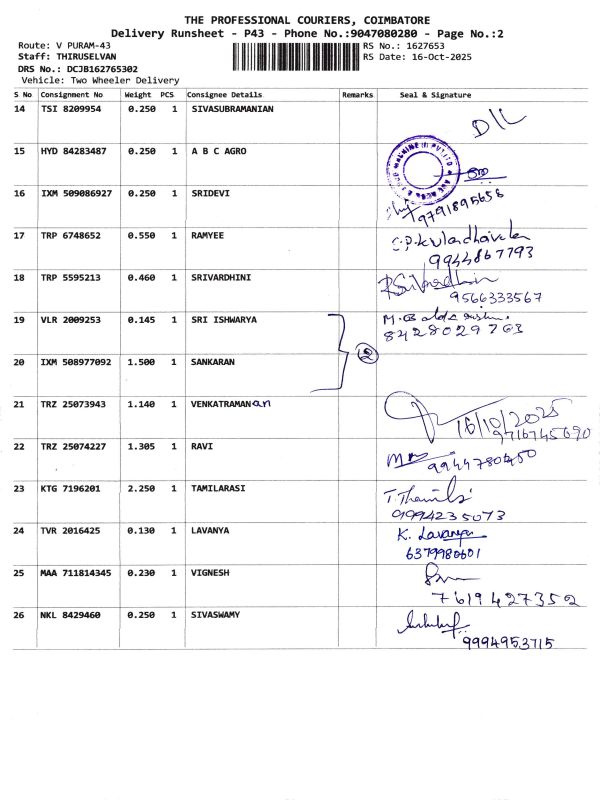 THE PROFESSIONAL COURIERS, COIMBATORE
Delivery Runsheet - P43 - Phone No.:9047080280 - Page No.:2
Route: V PURAM-43 RS No.: 1627653
Staff: THIRUSELVAN RS Date: 16-Oct-2025
DRS No.: DCJB162765302
Vehicle: Two Wheeler Delivery
S No Consignment No Weight PCS Consignee Details Remarks Seal & Signature
14 TSI 8209954 0.250 1 SIVASUBRAMANIAN D/L
15 HYD 84283487 0.250 1 A B C AGRO
16 IXM 509086927 0.250 1 SRIDEVI
9791895656
17 TRP 6748652 0.550 1 RAMYEE
9944867793
18 TRP 5595213 0.460 1 SRIVARDHINI
9566333567
19 VLR 2009253 0.145 1 SRI ISHWARYA
8428029763
20 IXM 508977092 1.500 1 SANKARAN
2
21 TRZ 25073943 1.140 1 VENKATRAMANan
16/10/2025
9716745690
22 TRZ 25074227 1.305 1 RAVI
9944780450
23 KTG 7196201 2.250 1 TAMILARASI
9994235073
24 TVR 2016425 0.130 1 LAVANYA K. Lavanya
6379980601
25 MAA 711814345 0.230 1 VIGNESH
7619427352
26 NKL 8429460 0.250 1 SIVASWAMY
9994953715